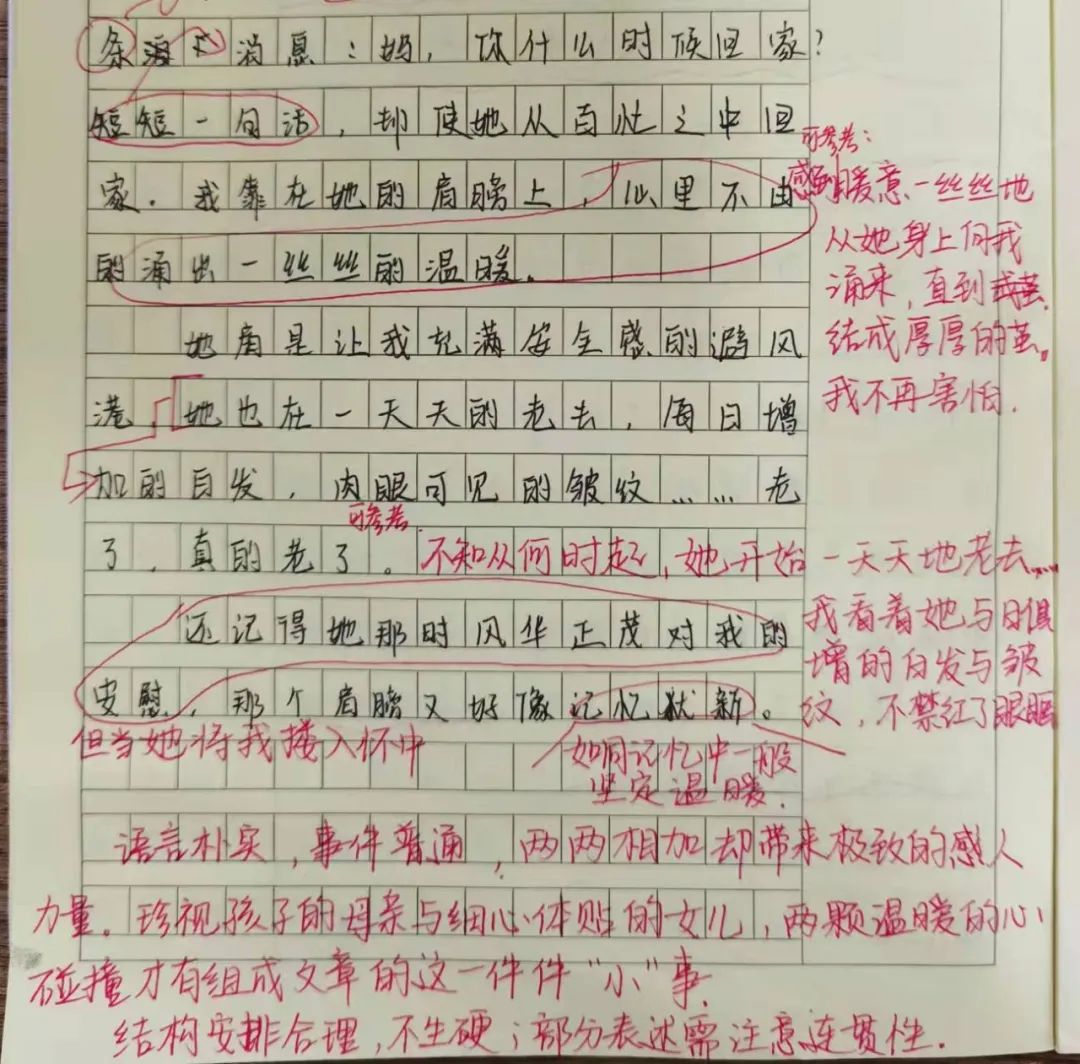 条 消息：妈，你什么时候回家？
短短一句话，却使她从百忙之中回
可参考：
家。我靠在她的肩膀上，心里不由
感到暖意一丝丝地
从她身上向我
的涌出一丝丝的温暖。
涌来，直到
结成厚厚的茧。
她肩是让我充满安全感的避风
我不再害怕。
港，她也在一天天的老去，每日增
加的白发，肉眼可见的皱纹……老
可参考
了，真的老了。不知从何时起，她开始一天天地老去……
我看着她与日俱
还记得她那时风华正茂对我的
增的白发与皱
安慰，那个肩膀又好像记忆犹新。
纹，不禁红了眼眶
但当她将我搂入怀中
如同记忆中一般
坚定温暖。
语言朴实，事件普通，两两相加却带来极致的感人
力量。珍视孩子的母亲与细心体贴的女儿，两颗温暖的心
碰撞才有组成文章的这一件件“小”事。
结构安排合理，不生硬；部分表述需注意连贯性。